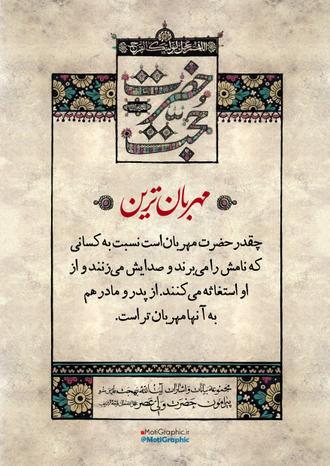 اللهم عجل لولیک الفرج
حضرت
حجت
مهربان‌ترین
چقدر حضرت مهربان است نسبت به کسانی
که نامش را می‌برند و صدایش می‌زنند و از
او استغاثه می‌کنند. از پدر و مادر هم
به آنها مهربان تر است.
مجموعه بیانات و اشارات آیت الله بهجت
پیرامون حضرت ولی عصر
MotiGraphic.ir
@MotiGraphic